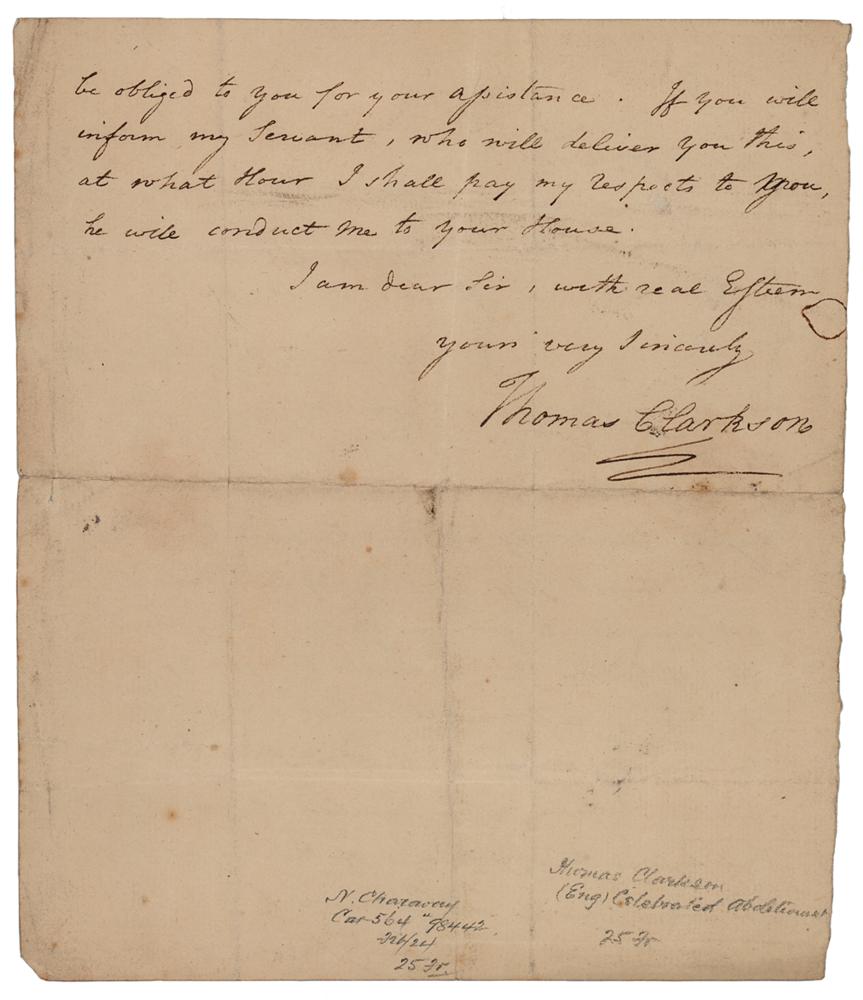 be obliged to you for your assistance. If you will
inform my Servant, who will deliver you this,
at what Hour I shall pay my respects to you,
he will conduct me to your House.
I am dear Sir, with real Esteem
yours very sincerely
Thomas Clarkson
N. Charavay
Cat 564 "98442
25 Fr.
Thomas Clarkson
(Eng) Celebrated Abolitionist
25 Fr